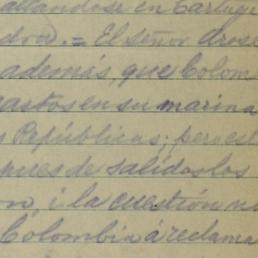 allandose en Cartage
dra. = El señor Arose
además, que Colom
gastos en su marina
s Repúblicas; pero est
pues de salidos los
on i la cuestión no
Colombia á reclama